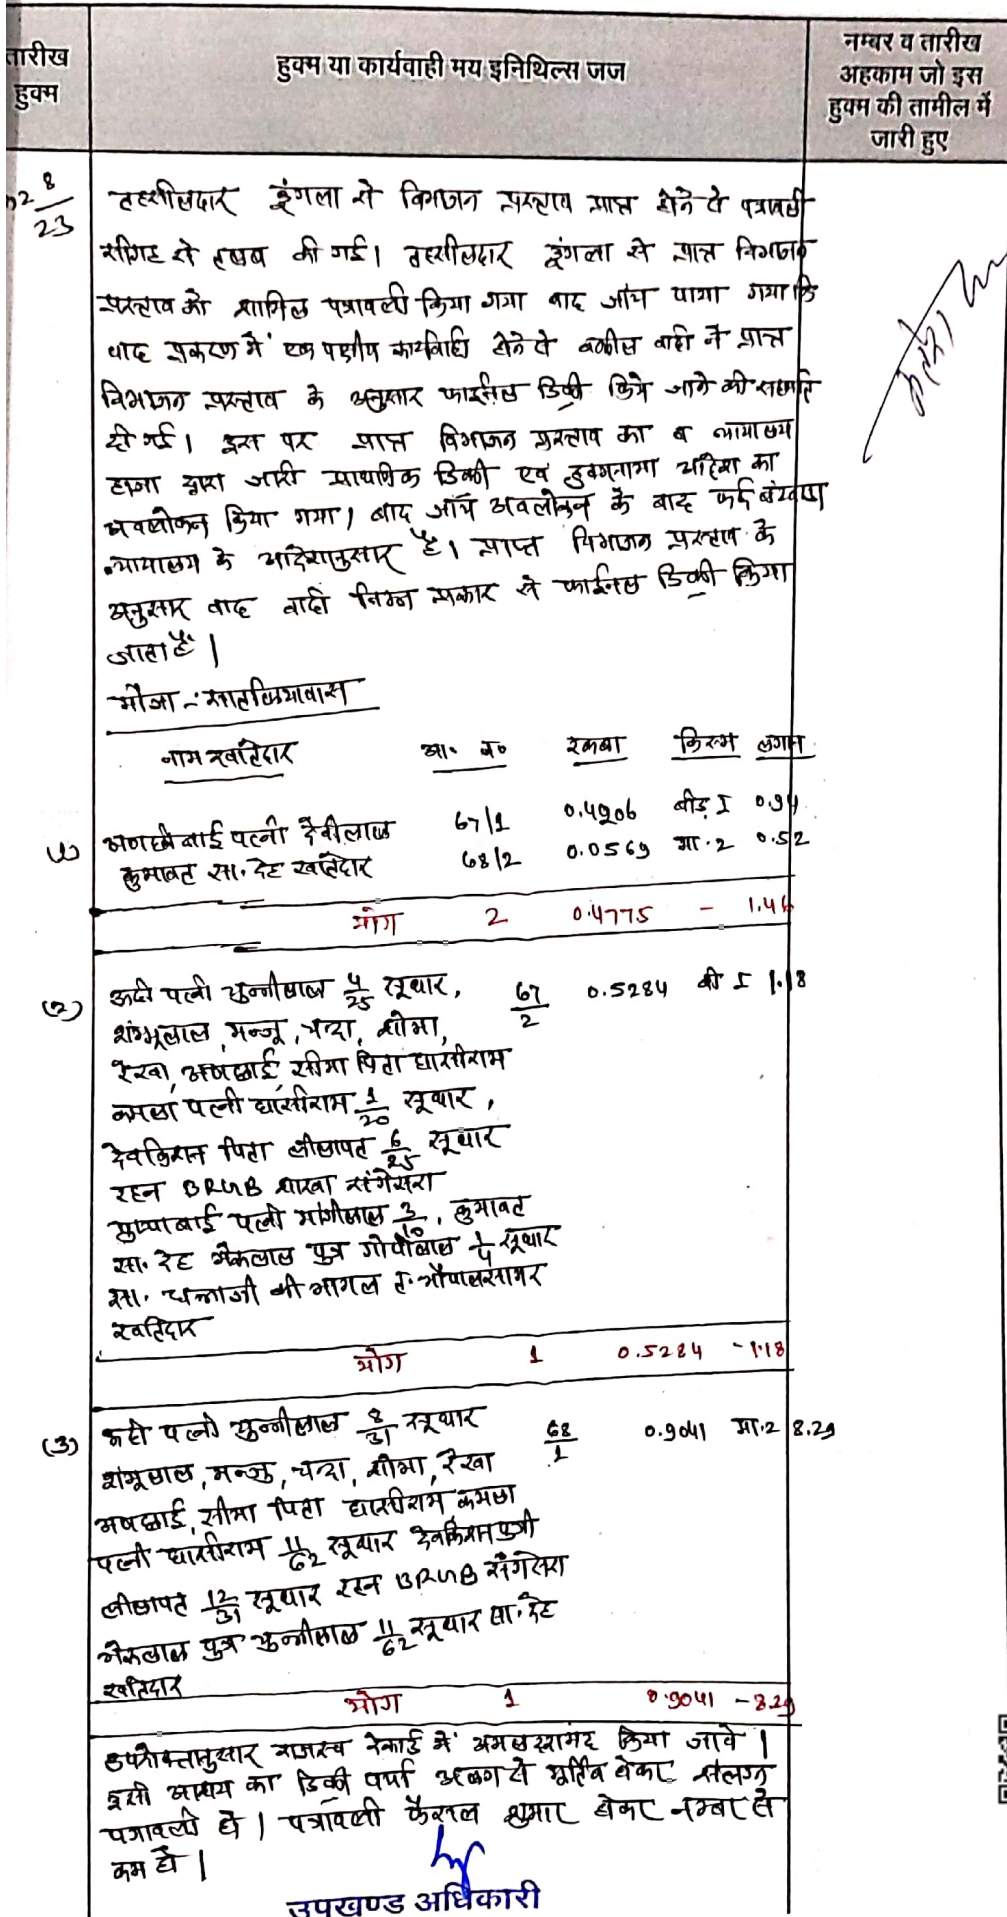 तारीख
हुक्म
हुक्म या कार्यवाही मय इनिथिल्स जज
नम्बर व तारीख
अहकाम जो इस
हुक्म की तामील में
जारी हुए
8
23
तहसीलदार डूंगला से विभाजन प्रस्ताव प्राप्त होने से पत्रावली
सीगह से तलब की गई। तहसीलदार डूंगला से प्राप्त विभाजन
प्रस्ताव को शामिल पत्रावली किया गया बाद जांच पाया गया कि
वाद प्रकरण में एक पक्षीय कार्यवाही होने से वकील वादी ने प्राप्त
विभाजन प्रस्ताव के अनुसार फाईनल डिक्री किये जाने की सहमति
दी गई। इस पर प्राप्त विभाजन प्रस्ताव का व न्यायालय
हाजा द्वारा जारी प्राथमिक डिक्री एवं हुक्मनामा आदेश का
अवलोकन किया गया। बाद जांच अवलोकन के बाद
न्यायालय के आदेशानुसार है। प्राप्त विभाजन प्रस्ताव के
अनुसार वाद वादी निम्न प्रकार से फाईनल डिक्री किया
जाता है।
मौजा :-
नाम खातेदार आ. न. रकबा किस्म लगान
(1) पत्नी देवीलाल 67/1 0.4206 बीड़ I 0.94
कुमावत सा. देह खातेदार 68/2 0.0569 मा.2 0.52
योग 2 0.4775 - 1.46
(2) पत्नी चुन्नीलाल 4/25 सूथार, 67/2 0.5284 बी I 1.18
शम्भूलाल, मन्जू, चन्दा, शोभा,
रेखा, अणछाई, सीमा पिता घासीराम
कमला पत्नी घासीराम 1/20 सूथार,
देवकिशन पिता लीलापत 6/25 सूथार
रहन BRGB शाखा संगेसरा
पुष्पाबाई पत्नी मांगीलाल 3/10, कुमावत
सा. देह भैरूलाल पुत्र गोपीलाल 1/4 सूथार
सा. की भागल त. भोपालसागर
खातेदार
योग 1 0.5284 - 1.18
(3) पत्नी चुन्नीलाल 8/31 सूथार 68/1 0.9041 मा.2 8.29
शंभूलाल, मन्जु, चन्दा, शोभा, रेखा
अणछाई, सीमा पिता घासीराम, कमला
पत्नी घासीराम 11/62 सूथार देवकिशन पुत्री
लीलापत 12/31 सूथार रहन BRGB संगेसरा
भैरूलाल पुत्र चुन्नीलाल 11/62 सूथार सा. देह
खातेदार
योग 1 0.9041 - 8.29
उपरोक्तानुसार राजस्व रेकार्ड में अमल दरामद किया जावे।
इसी आशय का डिक्री पर्चा अलग से मुर्तिब होकर संलग्न
पत्रावली हो। पत्रावली फैसल शुमार होकर नम्बर से
कम हो।
उपखण्ड अधिकारी